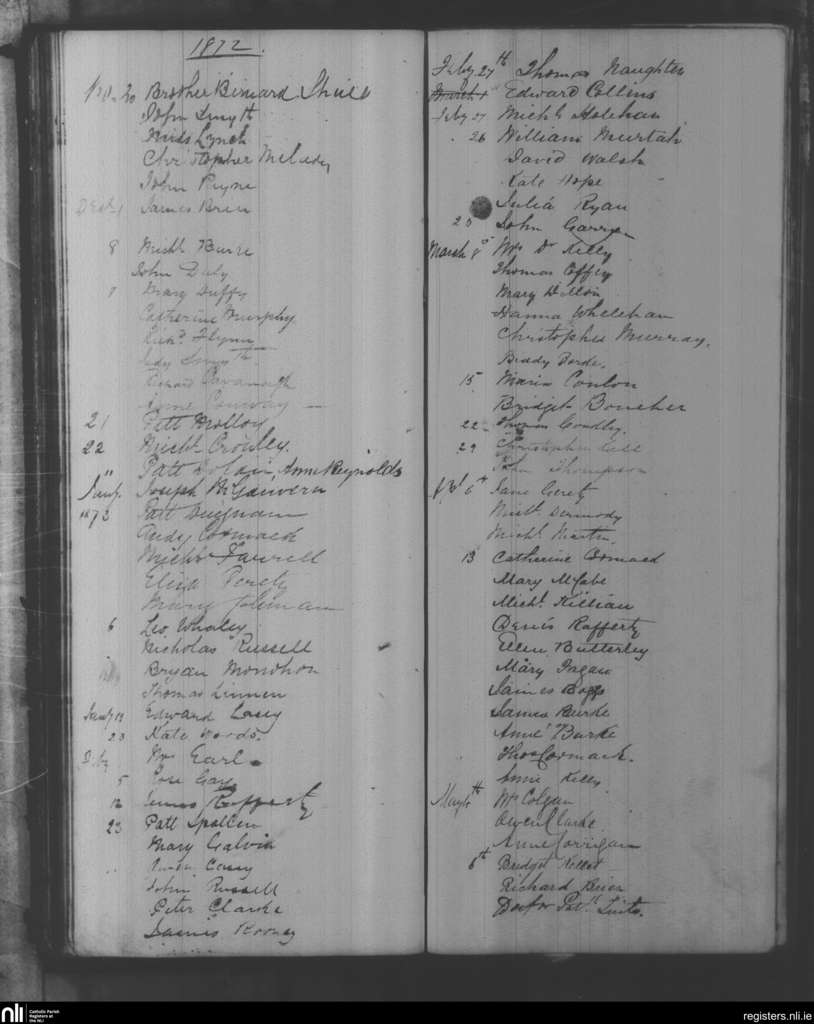 1872.
20 Brother Bernard Shiel
John Smyth
Lynch
Christopher Melady
John Pyne
James Bren
8 Michl Burke
John Daly
9 Mary Duffy
Catherine Murphy
Richd Flynn
Judy Smyth
Richard Cavanagh
Anne Conway
21 Patt Molloy
22 Michl Crowley.
Patt Dolan, Anne Reynolds
Jany. Joseph McGauvern
1873 Patt Duignam
Andy Cormack
Michl Farrell
Eliza Geraty
Mary
6 Leo. Whaley
Nicholas Russell
Bryan Monohon
Thomas Linnen
Jany 13 Edward Casey
23 Kate Woods.
Mrs Earl
5 Rose Gay
12 James Rafferty
23 Patt Spollen
Mary Galvin
Owen Casey
John Russell
Peter Clarke
James Rooney
Feby 27th Thomas Naughten
March 1 Edward Collins
Feby 27 Michl Holehan
26 William Murtah
David Walsh
Kate Hope
Julia Ryan
25 John Garry
March 8 Mrs Dr Kelly
Thomas Coffey
Mary Dillon
Hanna Whelehan
Christopher Murray.
Biddy
15 Maria Conlon
Bridget Boucher
22 Thomas
29 Christopher Gill
John Thompson
6th Jane Geraty
Michl. Dermody
Michl. Martin.
13 Catherine Cormack
Mary McCabe
Michl. Killian
Denis Rafferty
Ellen Butterley
Mary Fagan
James Boggs
James Burke
Anne Burke
Thos Cormack.
Annie Kelly
May 4th Mrs Colgan
Owen Clarke
Anne Corrigan
6th Bridget Kellet
Richard Brien
Doctor Patk
nli
Catholic Parish
Registers at
the NLI
registers.nli.ie